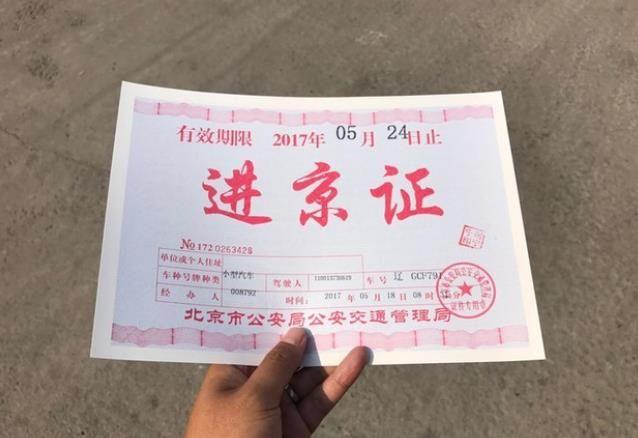 有效期限 2017年 05 月 24日止
进京证
№172 0263428
单位或个人住址
车种号牌种类 小型汽车 驾驶人 车号 辽 GCF791
经办人 008792 时间: 2017 年 05 月 18 日 08 时
北京市公安局公安交通管理局